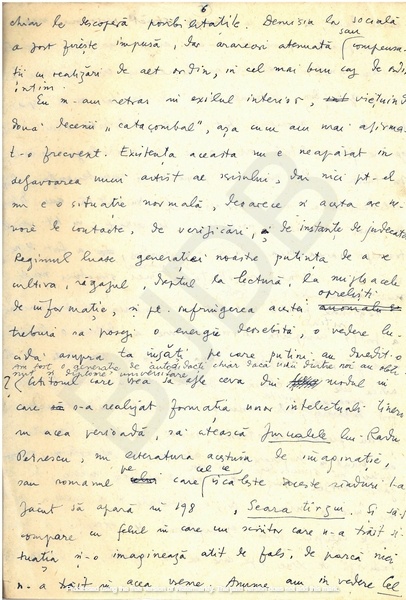 6
chiar le descoperă posibilitățile. Demisia la socială
a fost firește impusă, dar arareori atenuată sau compensa-
tă cu realizări de alt ordin, în cel mai bun caz de ordin
intim.
Eu m-am retras în exilul interior, viețuind
două decenii „catacombal”, așa cum am mai afirma-
t-o frecvent. Existența aceasta nu e neapărat în
defavoarea unui artist al scrisului, dar nici pt. el
nu e o situație normală, deoarece și acesta are ne-
voie de contacte, de verificări, și de instanțe de judecată.
Regimul luase generației noastre putința de a se
cultiva, răgazul, dreptul la lectură, la mijloacele
de informație, și pe infringerea acestei opreliști
trebuia să posezi o energie deosebită, o vedere lu-
cidă asupra ta însăți, pe care puțini au dovedit-o
Am fost o generație de autodidacți chiar dacă unii dintre noi au obți-
nut și diplome universitare.
? Cititorul care vrea să afle ceva din modul în
care s-a realizat formația unor intelectuali tineri
în acea perioadă, să citească Jurnalele lui Radu
Petrescu, nu literatura acestuia de imaginație,
sau romanul pe care cel ce scălește aceste rînduri l-a
făcut să apară în 198 , Seara tîrziu. Și să-l
compare cu felul în care un scriitor care n-a trăit si-
tuația și-o imaginează atît de fals, de parcă nici
n-a trăit în acea vreme. Anume am în vedere Cel